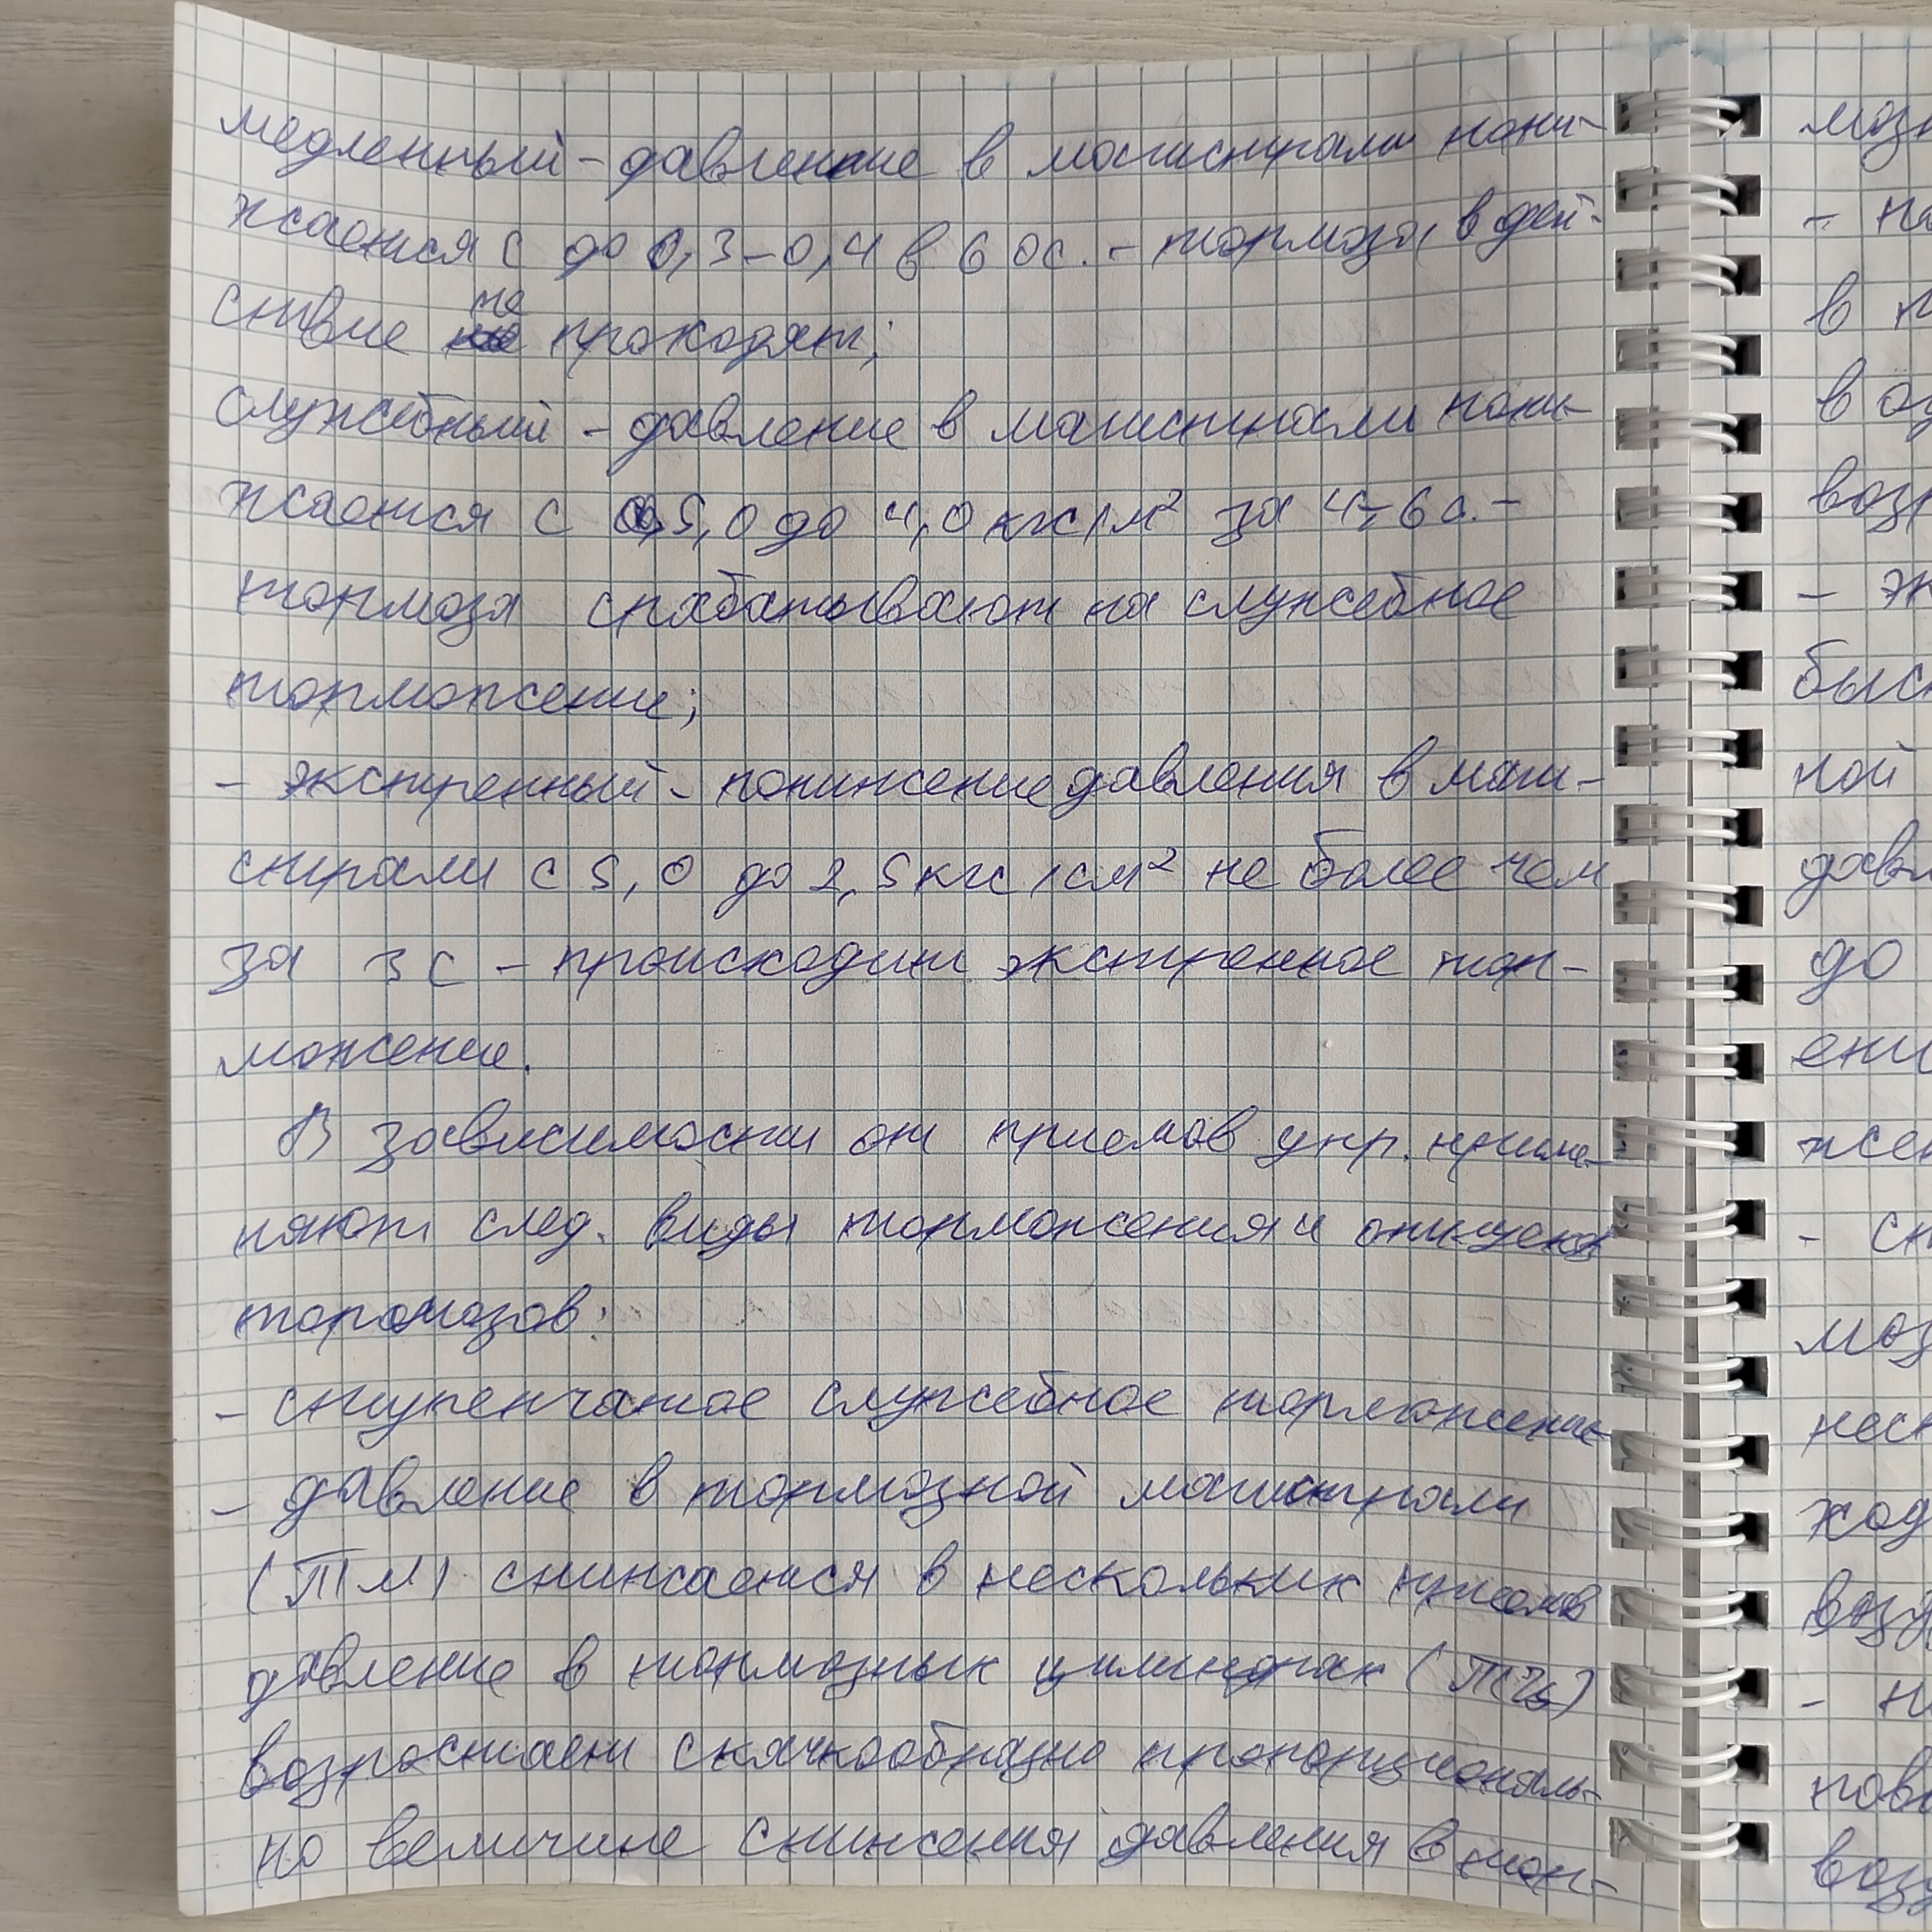 медленный - давление в магистрали пони-
жается с до 0,3-0,4 в 60с. - тормоза в дей-
ствие не проходят;
служебный - давление в магистрали пони-
жается с 5,0 до 4,0 кгс/м² за 4-6с. -
тормоза срабатывают на служебное
торможение;
- экстренный - понижение давления в маги-
страли с 5,0 до 2,5 кгс/см² не более чем
за 3с - происходит экстренное тор-
можение.
В зависимости от приемов упр. приме-
няют след. виды торможения и отпуска
торомозов:
- ступенчатое служебное торможение-
- давление в тормозной магистрали
(ТМ) снижается в нескольких приемов
давление в тормозных цилиндрах (ТЦ)
возростает скачкообразно пропорциональ-
но величине снижения давления в тор-
моз
- на
в
в
воз
- эк
быс
ной
давл
до
ени
жен
-
моз
нес
ход
воз
-
пов
воз